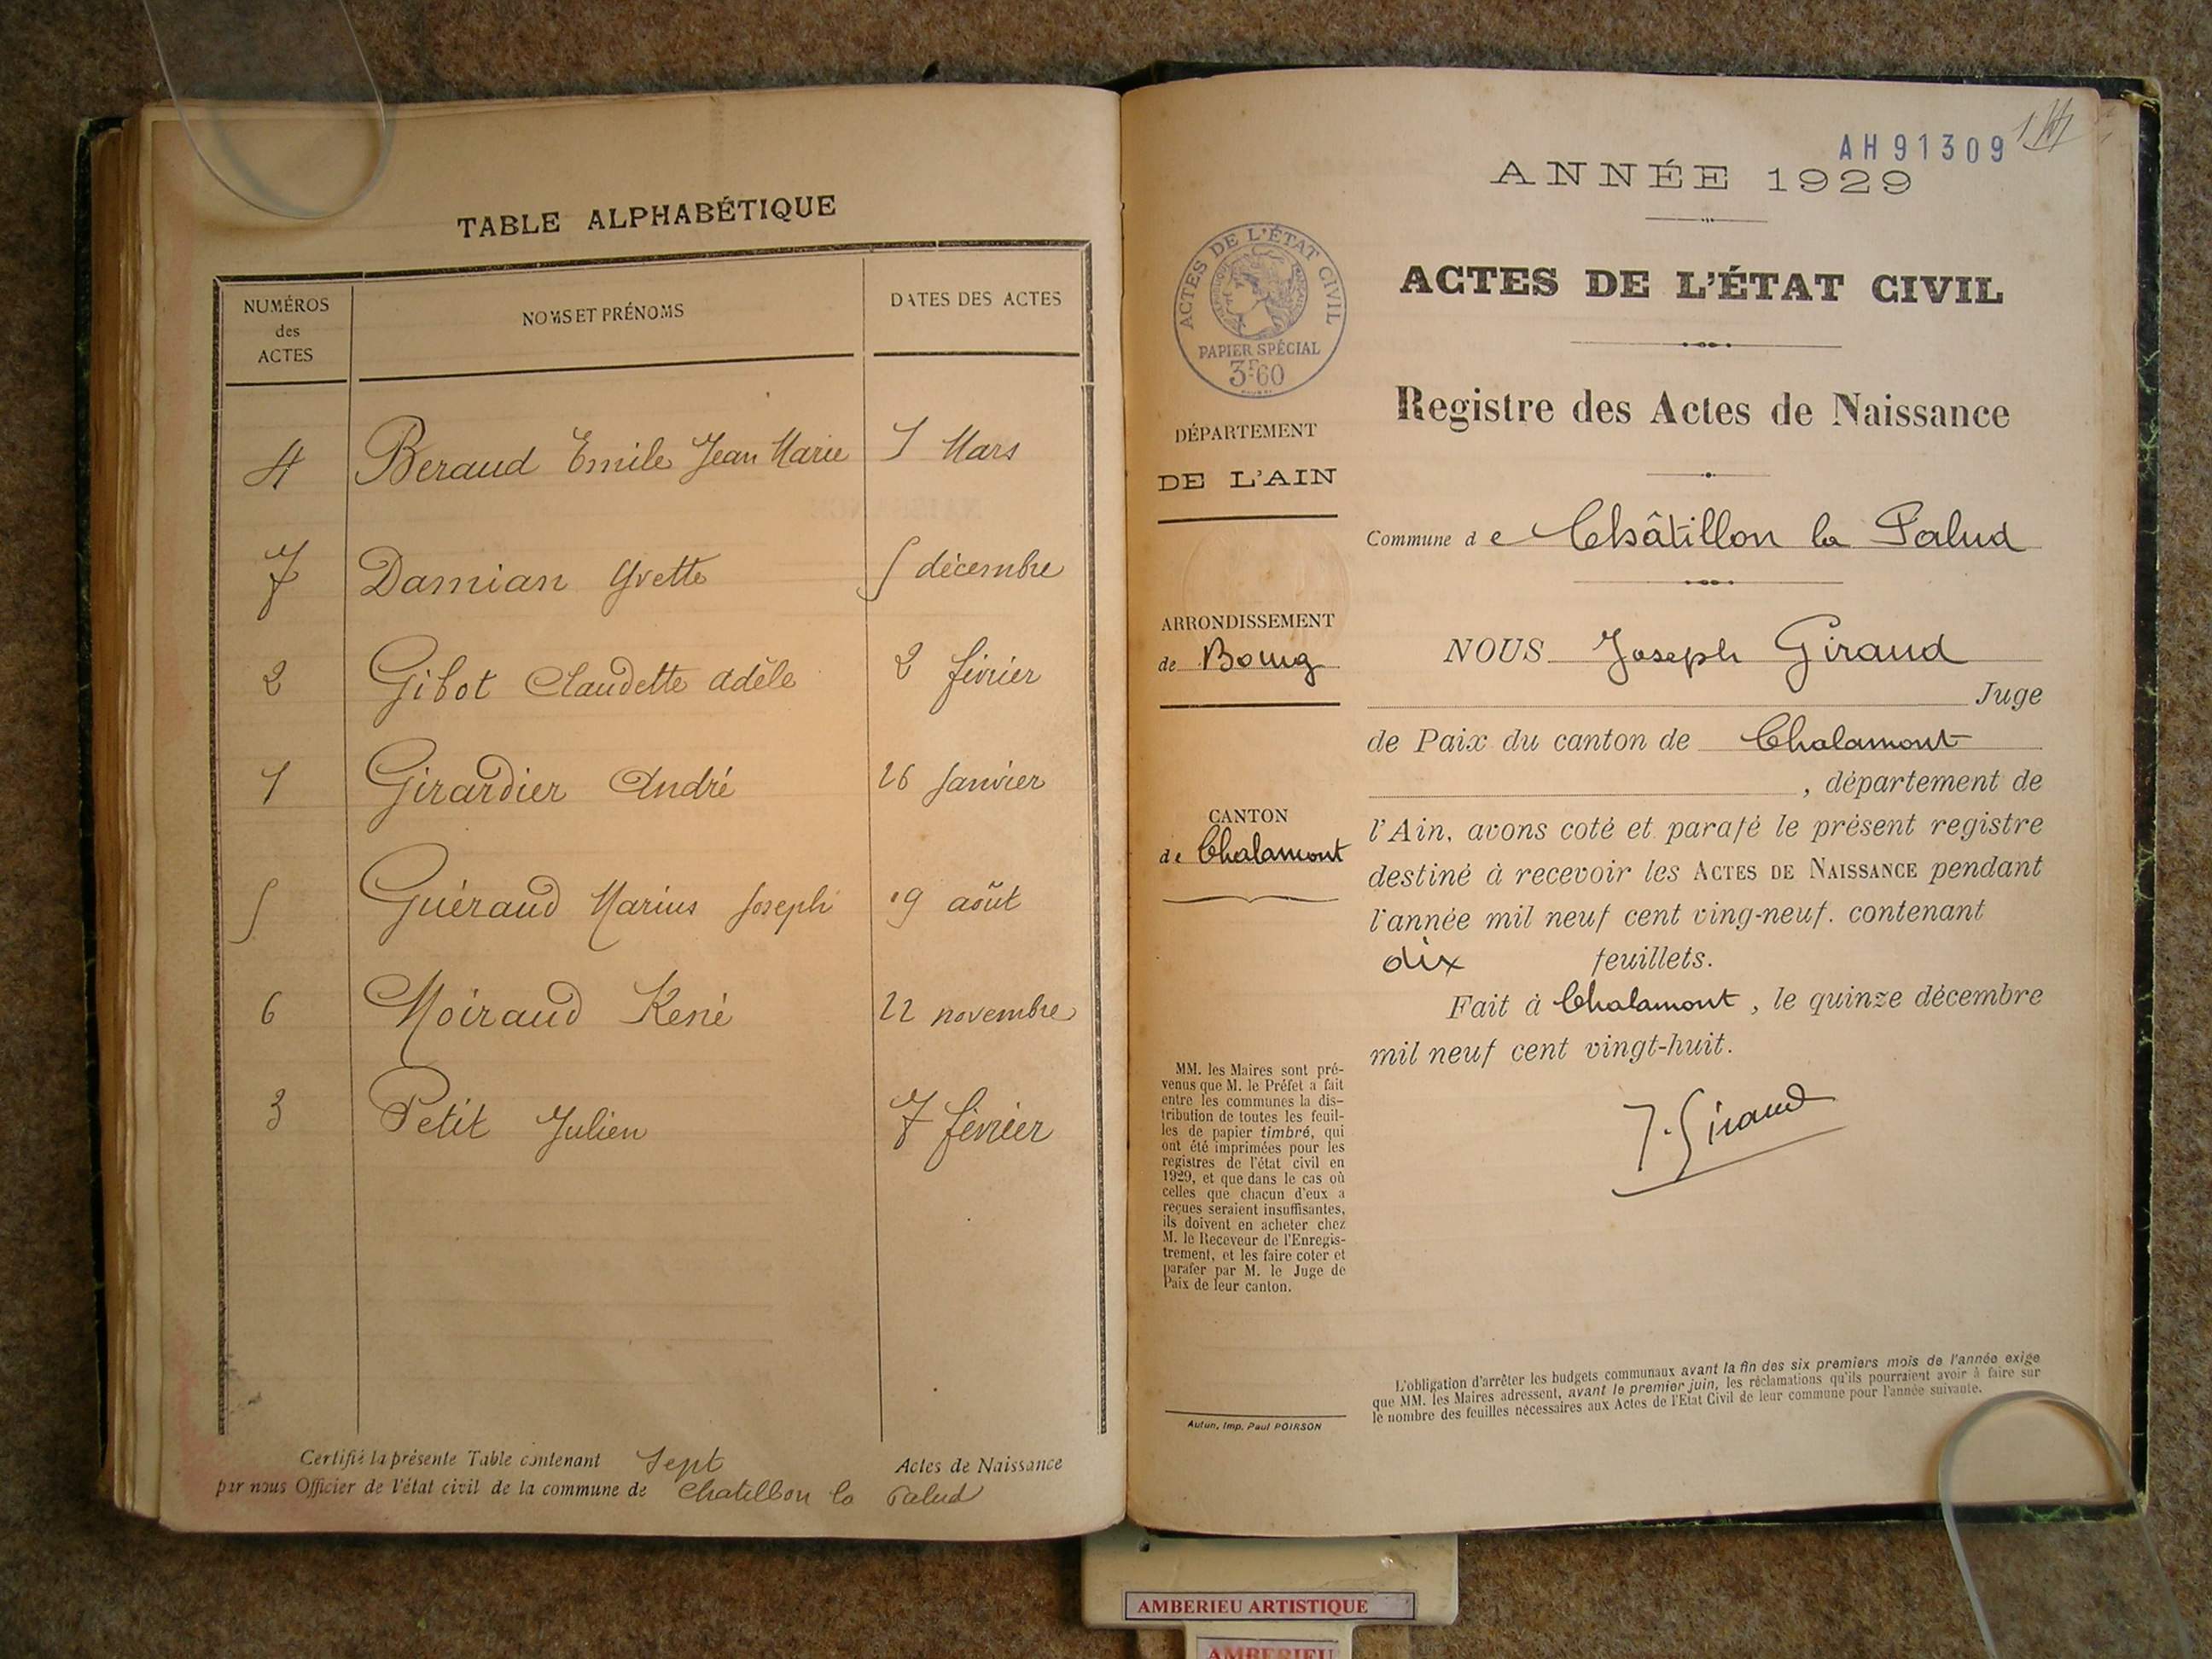 TABLE ALPHABÉTIQUE
NUMÉROS
des
ACTES
NOMS ET PRÉNOMS
DATES DES ACTES
4 Beraud Emile Jean Marie 1 Mars
7 Damian Yvette 5 décembre
2 Gibot Claudette Adèle 2 février
1 Girardier André 26 Janvier
5 Guéraud Marius Joseph 19 août
6 Moiraud René 22 novembre
3 Petit Julien 7 février
Certifié la présente Table contenant Sept Actes de Naissance
par nous Officier de l'état civil de la commune de Chatillon la Palud
AH91309
ANNÉE 1929
ACTES DE L'ÉTAT CIVIL
PAPIER SPÉCIAL
3F60
ACTES DE L'ÉTAT CIVIL
Registre des Actes de Naissance
DÉPARTEMENT
DE L'AIN
Commune de Châtillon la Palud
ARRONDISSEMENT
de Bourg
NOUS Joseph Giraud
Juge
de Paix du canton de Chalamont
, département de
CANTON
de Chalamont
l'Ain, avons coté et parafé le présent registre
destiné à recevoir les ACTES DE NAISSANCE pendant
l'année mil neuf cent ving-neuf. contenant
dix feuillets.
Fait à Chalamont, le quinze décembre
mil neuf cent vingt-huit.
J. Giraud
MM. les Maires sont pré-
venus que M. le Préfet a fait
entre les communes la dis-
tribution de toutes les feuil-
les de papier timbré, qui
ont été imprimées pour les
registres de l'état civil en
1929, et que dans le cas où
celles que chacun d'eux a
reçues seraient insuffisantes,
ils doivent en acheter chez
M. le Receveur de l'Enregis-
trement, et les faire coter et
parafer par M. le Juge de
Paix de leur canton.
Autun, Imp. Paul POIRSON
L'obligation d'arrêter les budgets communaux avant la fin des six premiers mois de l'année exige
que MM. les Maires adressent, avant le premier juin, les réclamations qu'ils pourraient avoir à faire sur
le nombre des feuilles nécessaires aux Actes de l'Etat Civil de leur commune pour l'année suivante.
AMBERIEU ARTISTIQUE
AMBERIEU